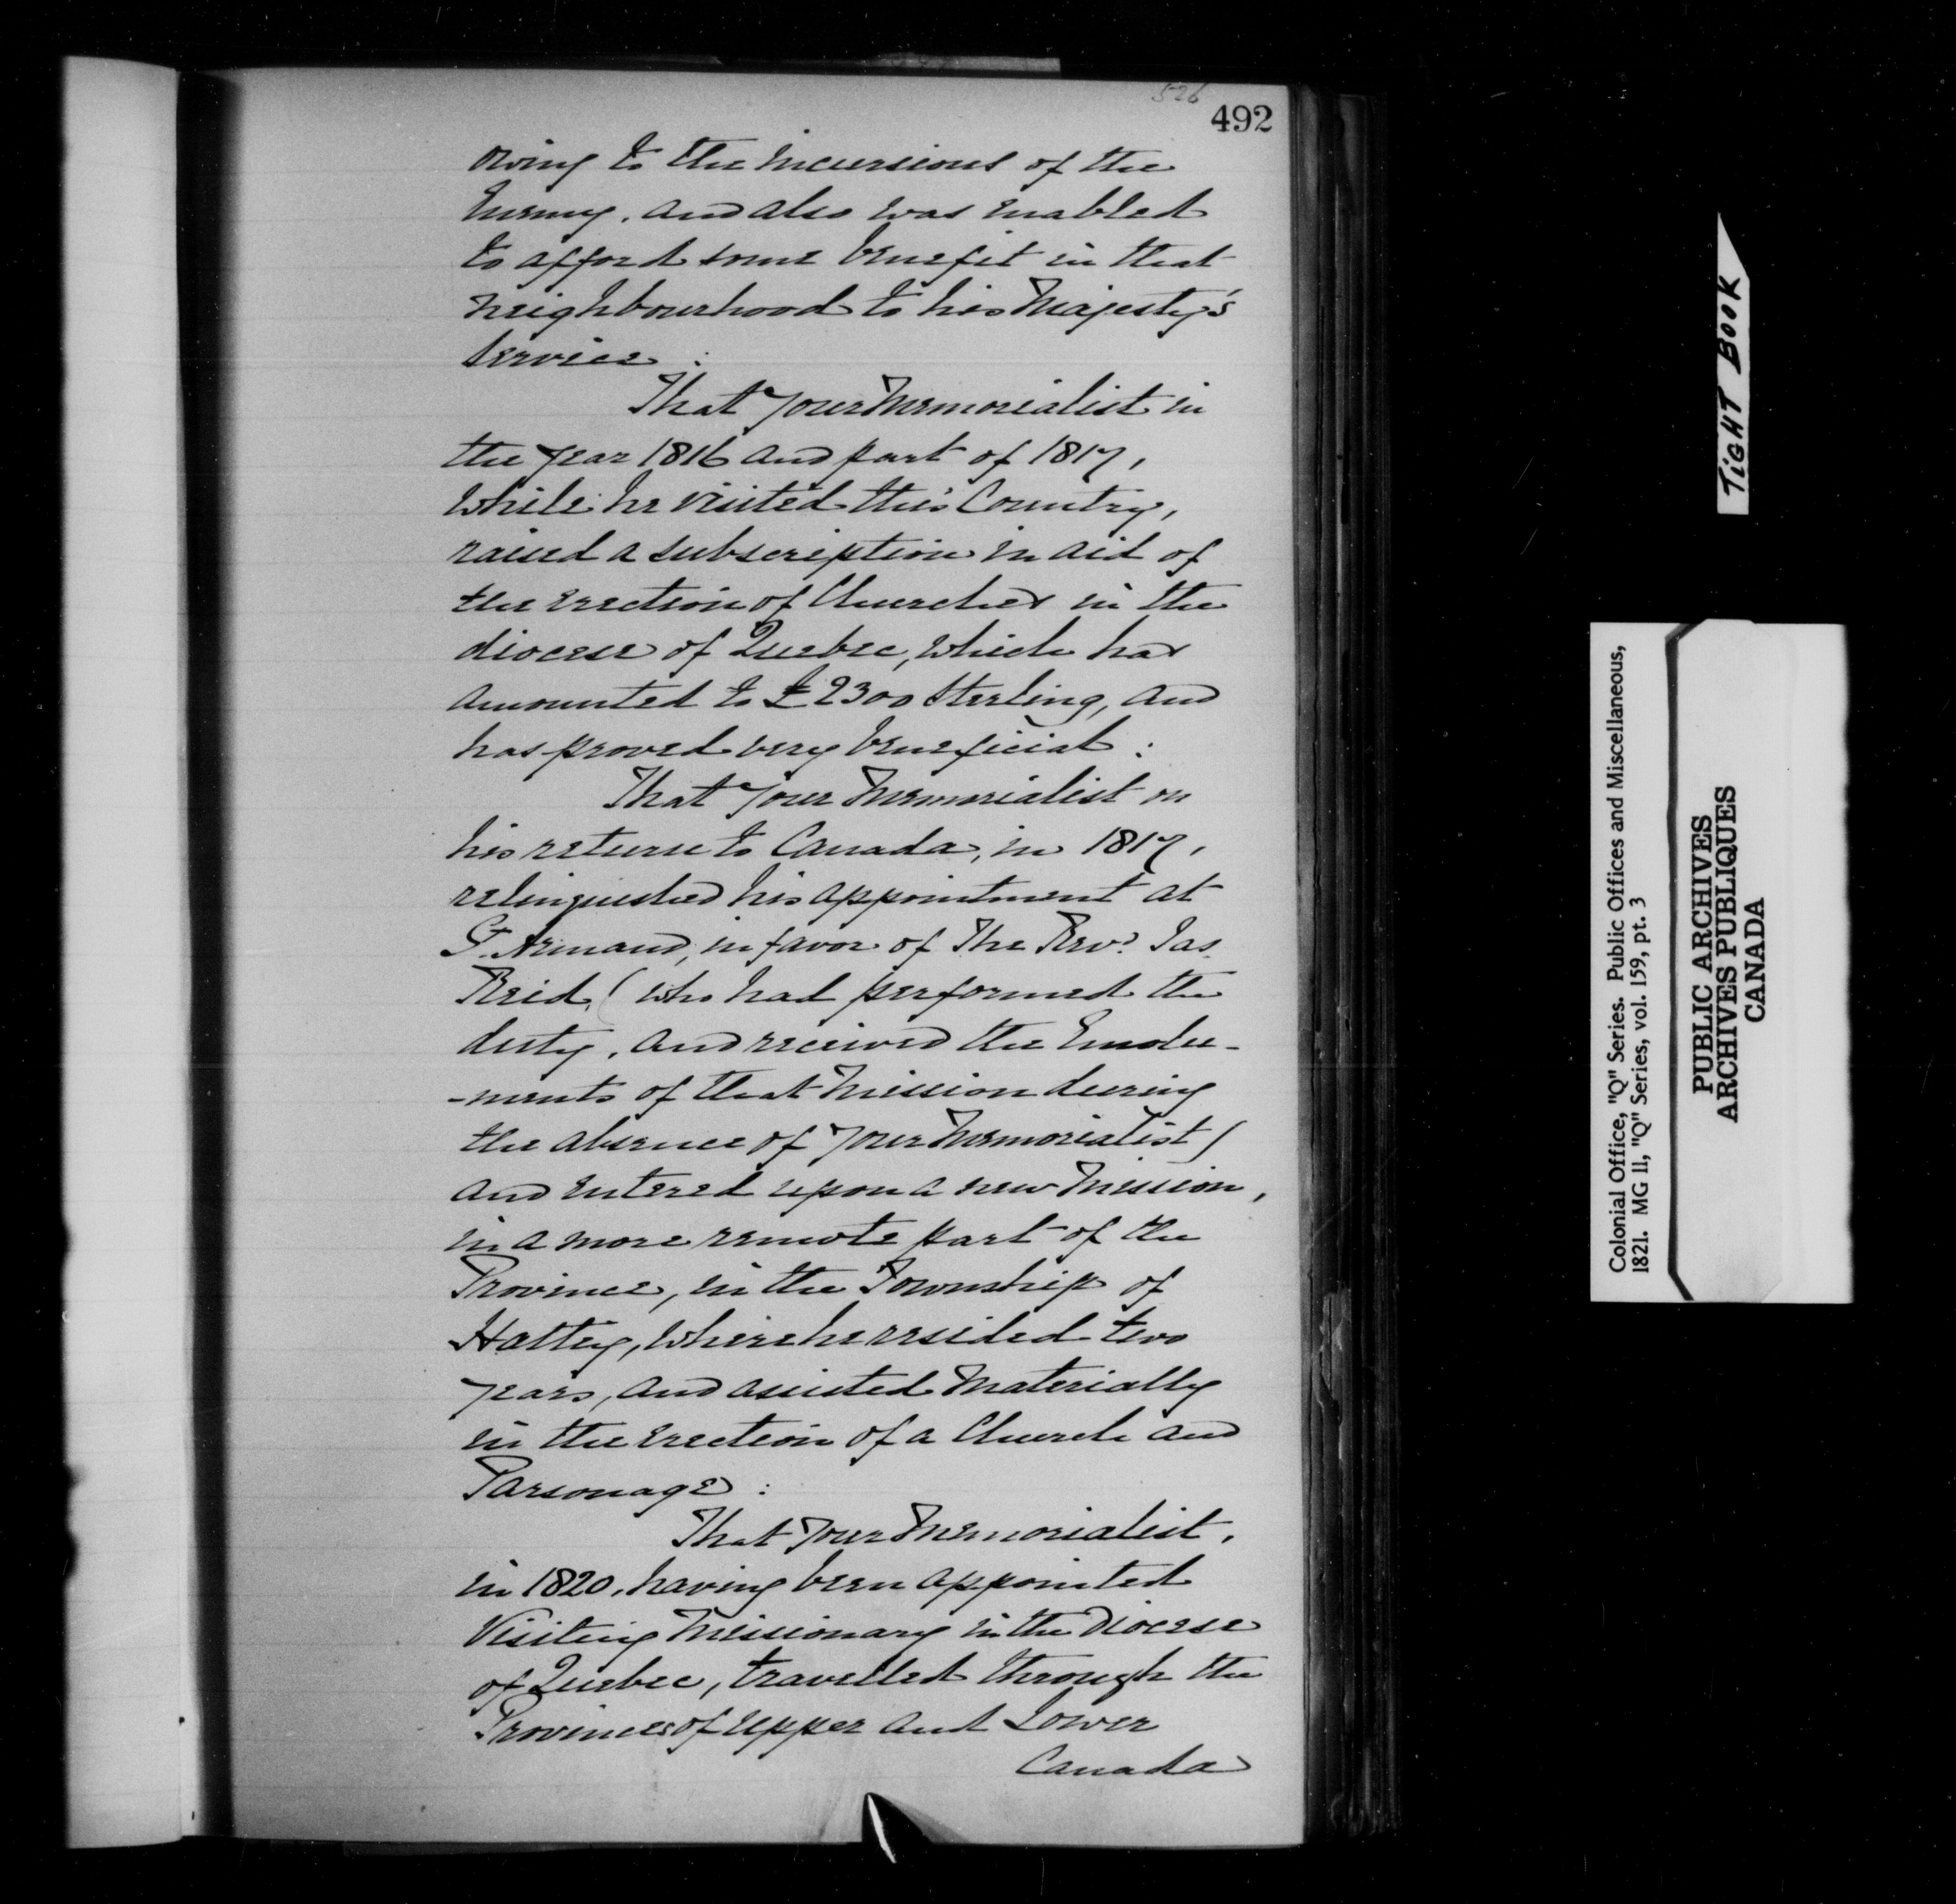 526
492
owing to the incursions of the
Enemy, and also was enabled
to afford some benefit in that
neighbourhood to his Majesty's
Service :
That your Memorialist in
the year 1816 and part of 1817,
while he visited this Country,
raised a subscription in aid of
the erection of Churches in the
diocese of Quebec, which has
amounted to £2300 Sterling, and
has proved very beneficial :
That your Memorialist on
his return to Canada, in 1817,
relinquished his appointment at
St. Armand, in favor of The Revd. Jas.
Reid, (who had performed the
duty, and received the Emolu-
-ments of that Mission during
the absence of your Memorialist)
and entered upon a new Mission,
in a more remote part of the
Province, in the Township of
Hatley, where he resided two
years, and assisted materially
in the erection of a Church and
Parsonage :
That your Memorialist,
in 1820, having been appointed
Visiting Missionary in the Diocese
of Quebec, travelled through the
Provinces of Upper and Lower
Canada
TIGHT BOOK
Colonial Office, "Q" Series. Public Offices and Miscellaneous,
1821. MG 11, "Q" Series, vol. 159, pt. 3
PUBLIC ARCHIVES
ARCHIVES PUBLIQUES
CANADA